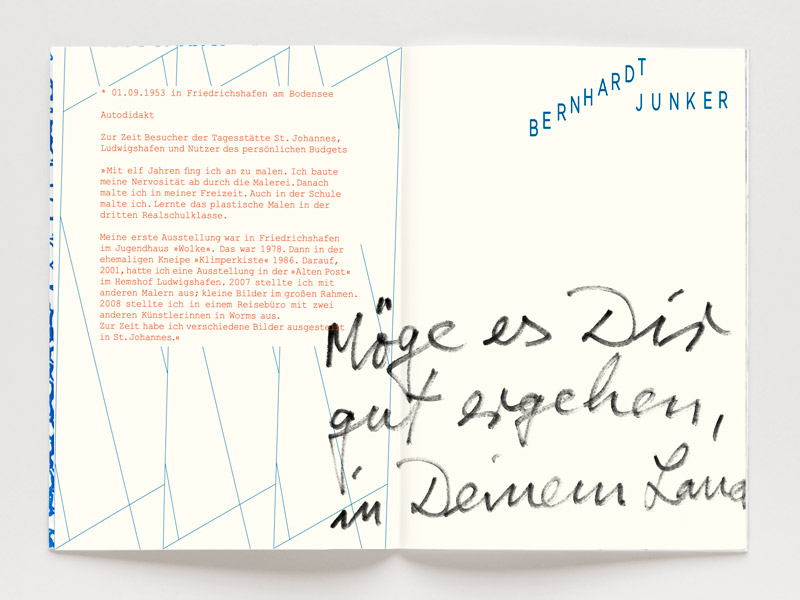 * 01.09.1953 in Friedrichshafen am Bodensee
Autodidakt
Zur Zeit Besucher der Tagesstätte St. Johannes,
Ludwigshafen und Nutzer des persönlichen Budgets
»Mit elf Jahren fing ich an zu malen. Ich baute
meine Nervosität ab durch die Malerei. Danach
malte ich in meiner Freizeit. Auch in der Schule
malte ich. Lernte das plastische Malen in der
dritten Realschulklasse.
Meine erste Ausstellung war in Friedrichshafen
im Jugendhaus »Wolke«. Das war 1978. Dann in der
ehemaligen Kneipe »Klimperkiste« 1986. Darauf,
2001, hatte ich eine Ausstellung in der »Alten Post«
im Hemshof Ludwigshafen. 2007 stellte ich mit
anderen Malern aus; kleine Bilder im großen Rahmen.
2008 stellte ich in einem Reisebüro mit zwei
anderen Künstlerinnen in Worms aus.
Zur Zeit habe ich verschiedene Bilder ausgestellt
in St. Johannes.«
BERNHARDT
JUNKER
Möge es Dir
gut ergehen,
in Deinem Land